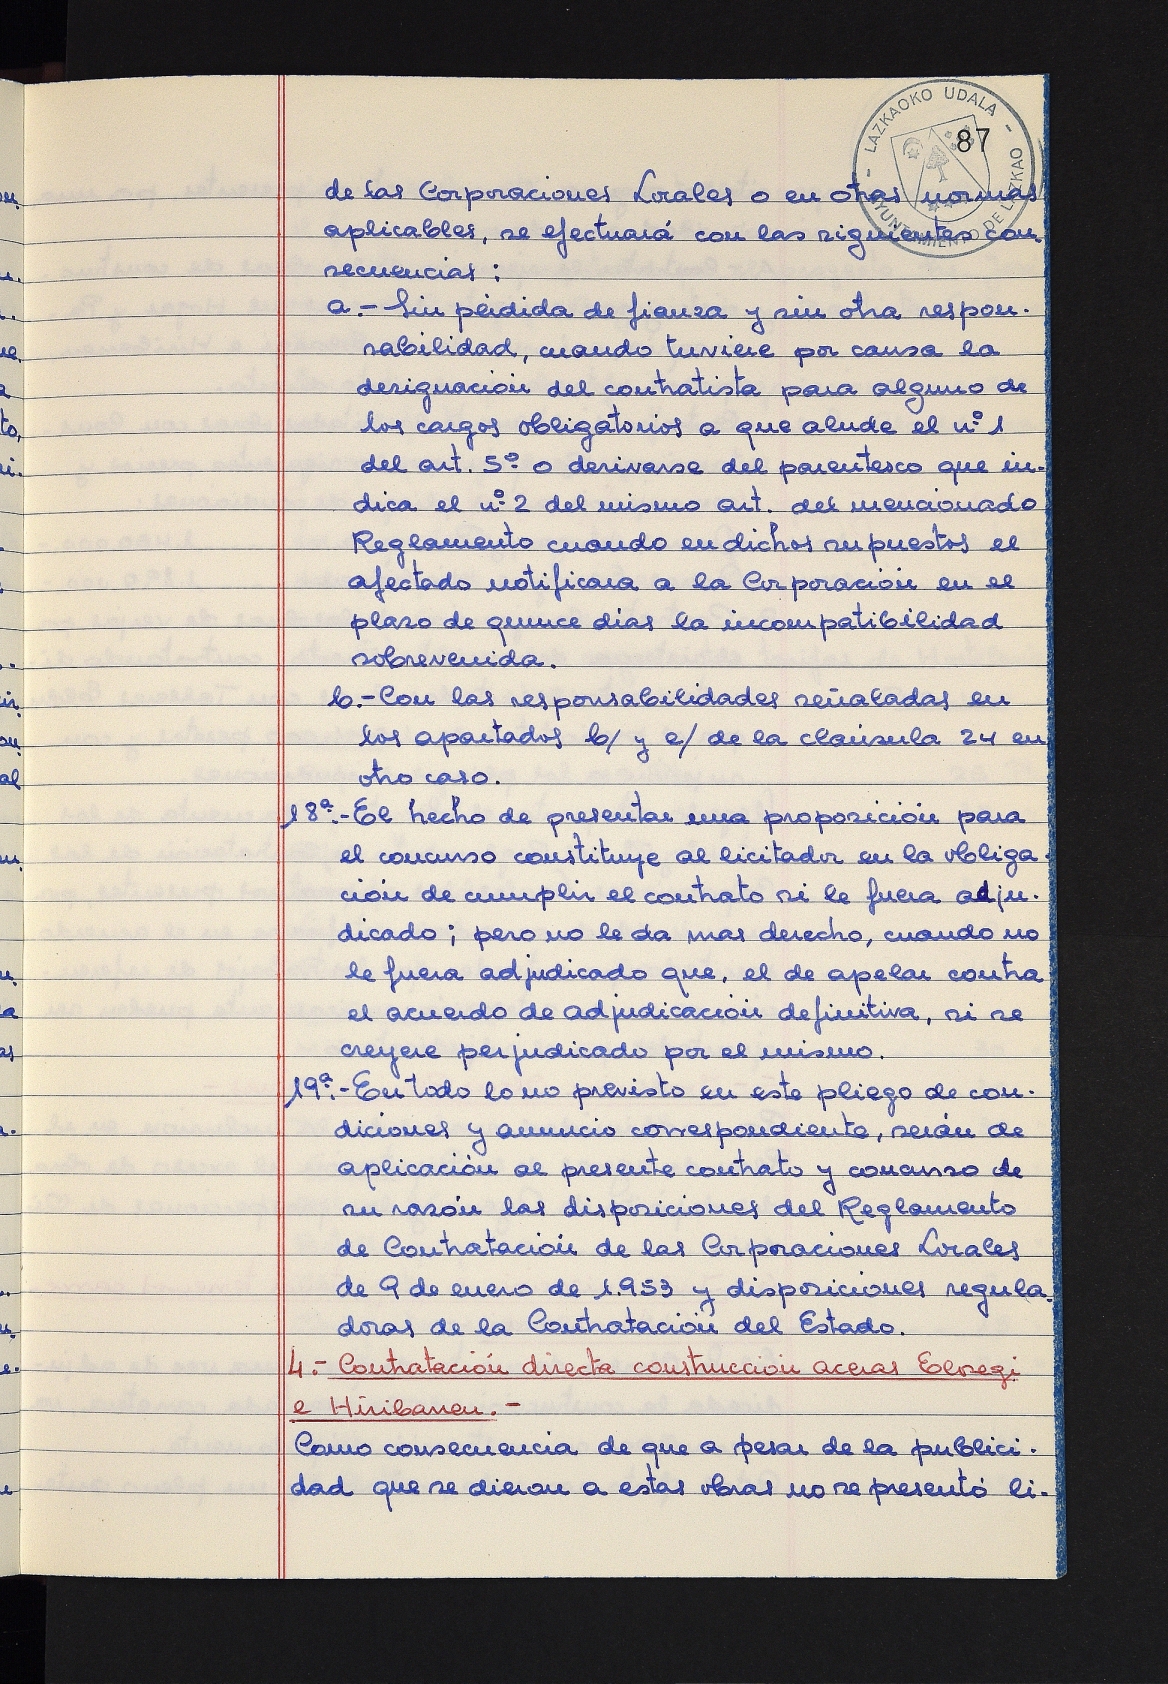 LAZKAOKO UDALA - AYUNTAMIENTO DE LAZKAO -
87
de las Corporaciones Locales o en otras normas
aplicables, se efectuará con las siguientes con
secuencias :
a.- Sin pérdida de fianza y sin otra respon-
sabilidad, cuando tuviere por causa la
designación del contratista para alguno de
los cargos obligatorios a que alude el nº 1
del art. 5º o derivarse del parentesco que in-
dica el nº 2 del mismo art. del mencionado
Reglamento cuando en dichos supuestos el
afectado notificara a la Corporación en el
plazo de quince días la incompatibilidad
sobrevenida.
b.- Con las responsabilidades señaladas en
los apartados b/ y e/ de la claúsula 24 en
otro caso.
18ª.- El hecho de presentar una proposición para
el concurso constituye al licitador en la obliga-
ción de cumplir el contrato si le fuera adju-
dicado ; pero no le da mas derecho, cuando no
le fuera adjudicado que, el de apelar contra
el acuerdo de adjudicación definitiva, si se
creyere perjudicado por el mismo.
19ª.- En todo lo no previsto en este pliego de con-
diciones y anuncio correspondiente, serán de
aplicación al presente contrato y concurso de
su razón las disposiciones del Reglamento
de Contratación de las Corporaciones Locales
de 9 de enero de 1.953 y disposiciones regula-
doras de la Contratación del Estado.
4.- Contratación directa construcción aceras Elosegi
e Hiribarren.-
Como consecuencia de que a pesar de la publici-
dad que se dieron a estas obras no se presentó li-